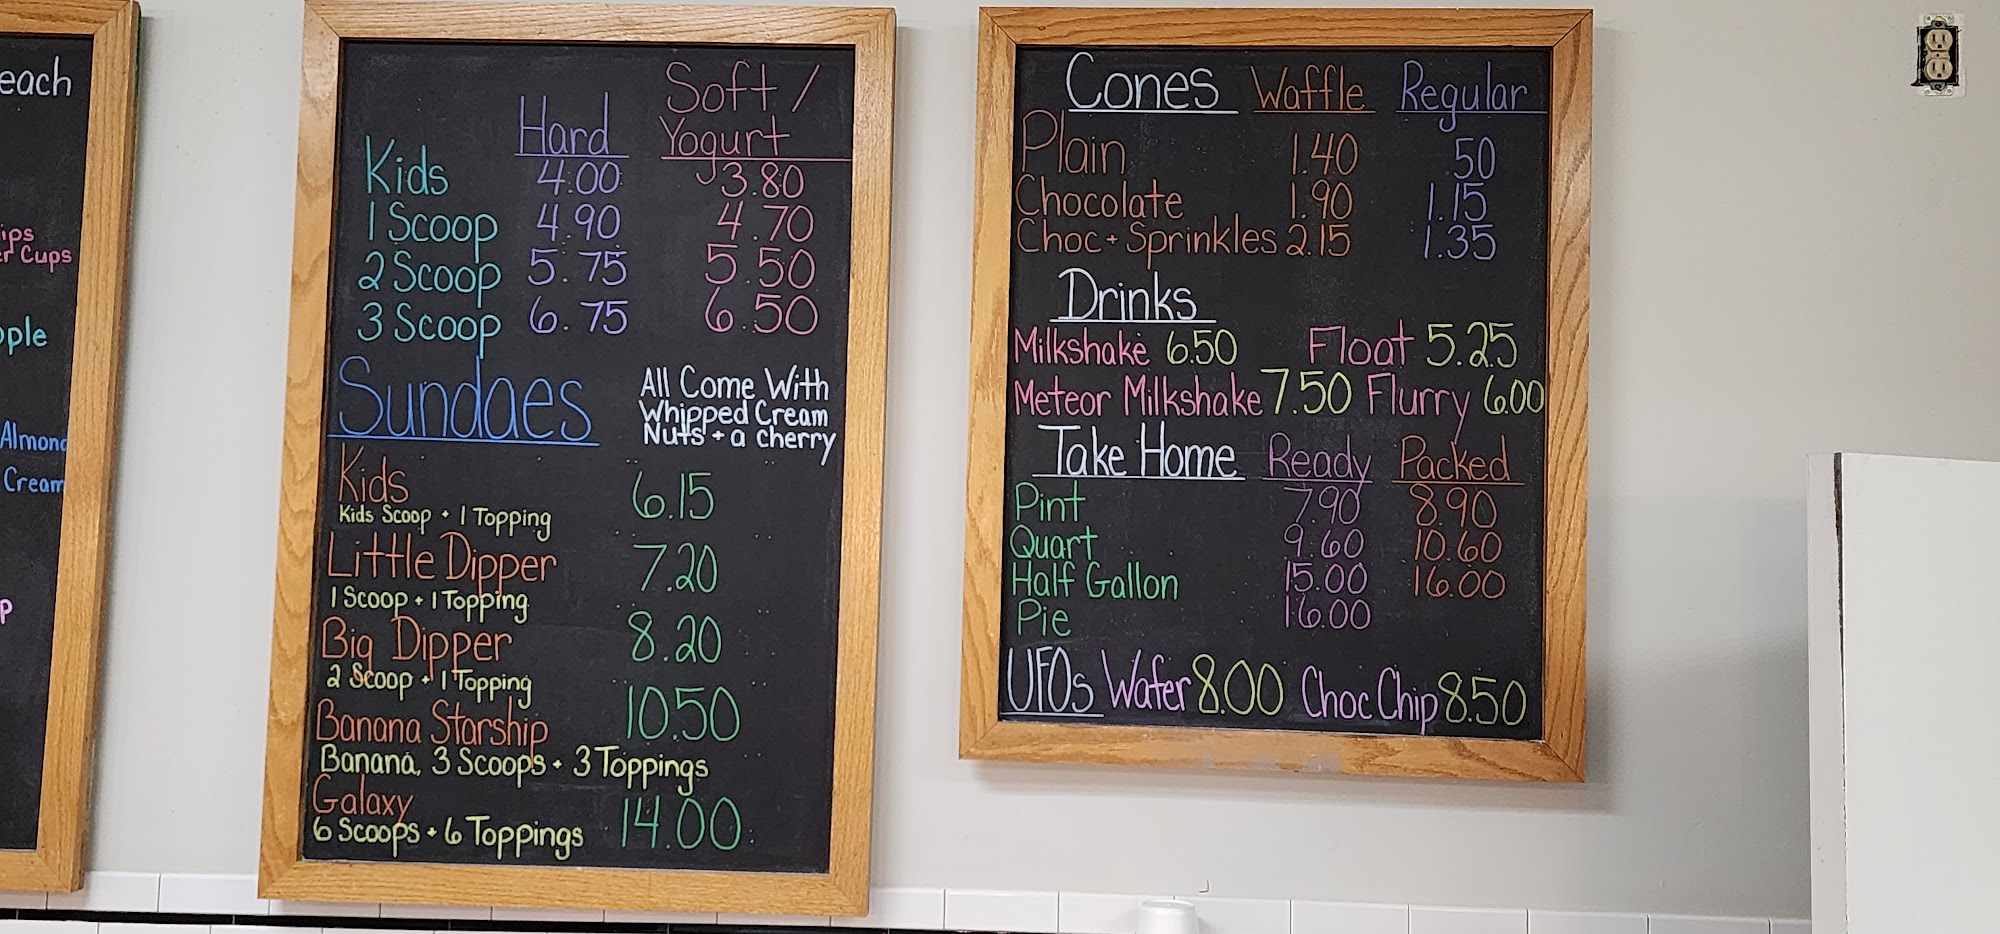 each
ips
er Cups
ople
Almond
Cream
p
Hard Soft / Yogurt
Kids 4.00 3.80
1 Scoop 4.90 4.70
2 Scoop 5.75 5.50
3 Scoop 6.75 6.50
Sundaes
All Come With
Whipped Cream
Nuts + a cherry
Kids 6.15
Kids Scoop + 1 Topping
Little Dipper 7.20
1 Scoop + 1 Topping
Big Dipper 8.20
2 Scoop + 1 Topping
Banana Starship 10.50
Banana, 3 Scoops + 3 Toppings
Galaxy 14.00
6 Scoops + 6 Toppings
Cones Waffle Regular
Plain 1.40 50
Chocolate 1.90 1.15
Choc + Sprinkles 2.15 1.35
Drinks
Milkshake 6.50 Float 5.25
Meteor Milkshake 7.50 Flurry 6.00
Take Home Ready Packed
Pint 7.90 8.90
Quart 9.60 10.60
Half Gallon 15.00 16.00
Pie 16.00
UFOs Wafer 8.00 Choc Chip 8.50